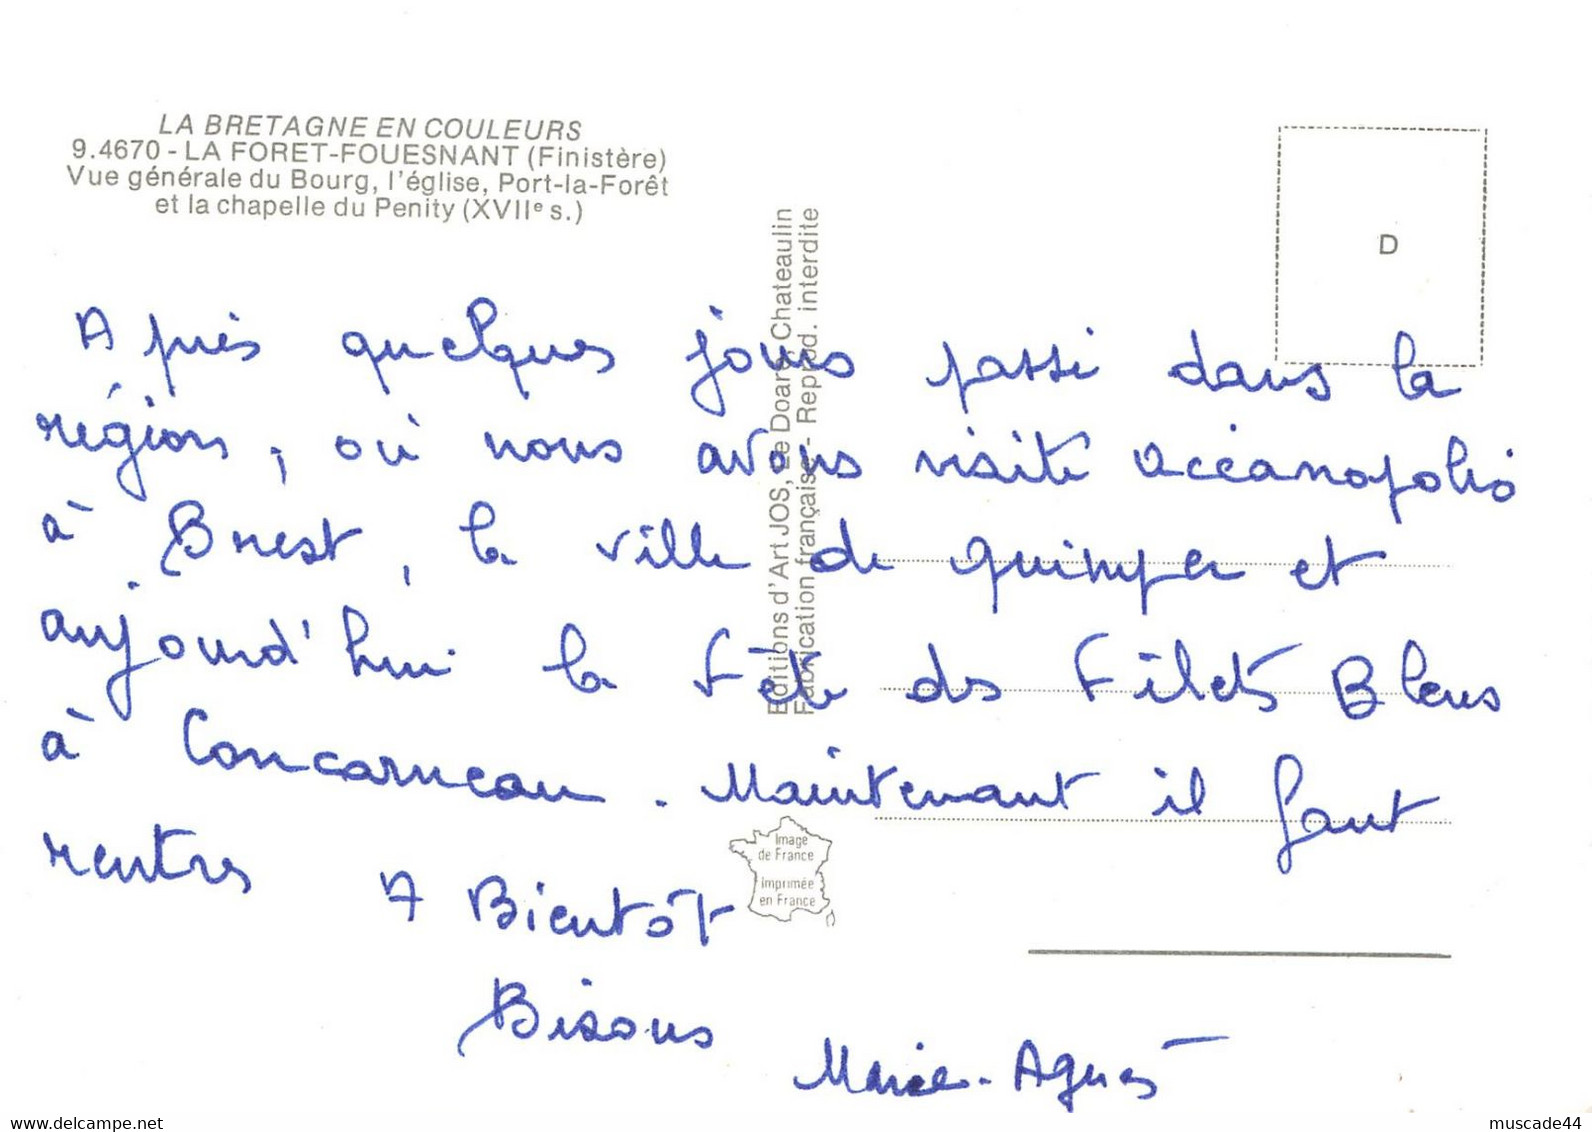 LA BRETAGNE EN COULEURS
9.4670 - LA FORET-FOUESNANT (Finistère)
Vue générale du Bourg, l'église, Port-la-Forêt
et la chapelle du Penity (XVIIe s.)
D
Editions d'Art JOS, Le Doaré, Chateaulin
Fabrication française - Reprod. interdite
Après quelques jours passé dans la
région, où nous avons visité océanopolis
à Brest, la ville de quimper et
aujourd'hui la fête des Filets Bleus
à Concarneau. Maintenant il faut
rentrer
A Bientôt
Image
de France
imprimée
en France
Bisous
Marie-Agnès
www.delcampe.net
muscade44